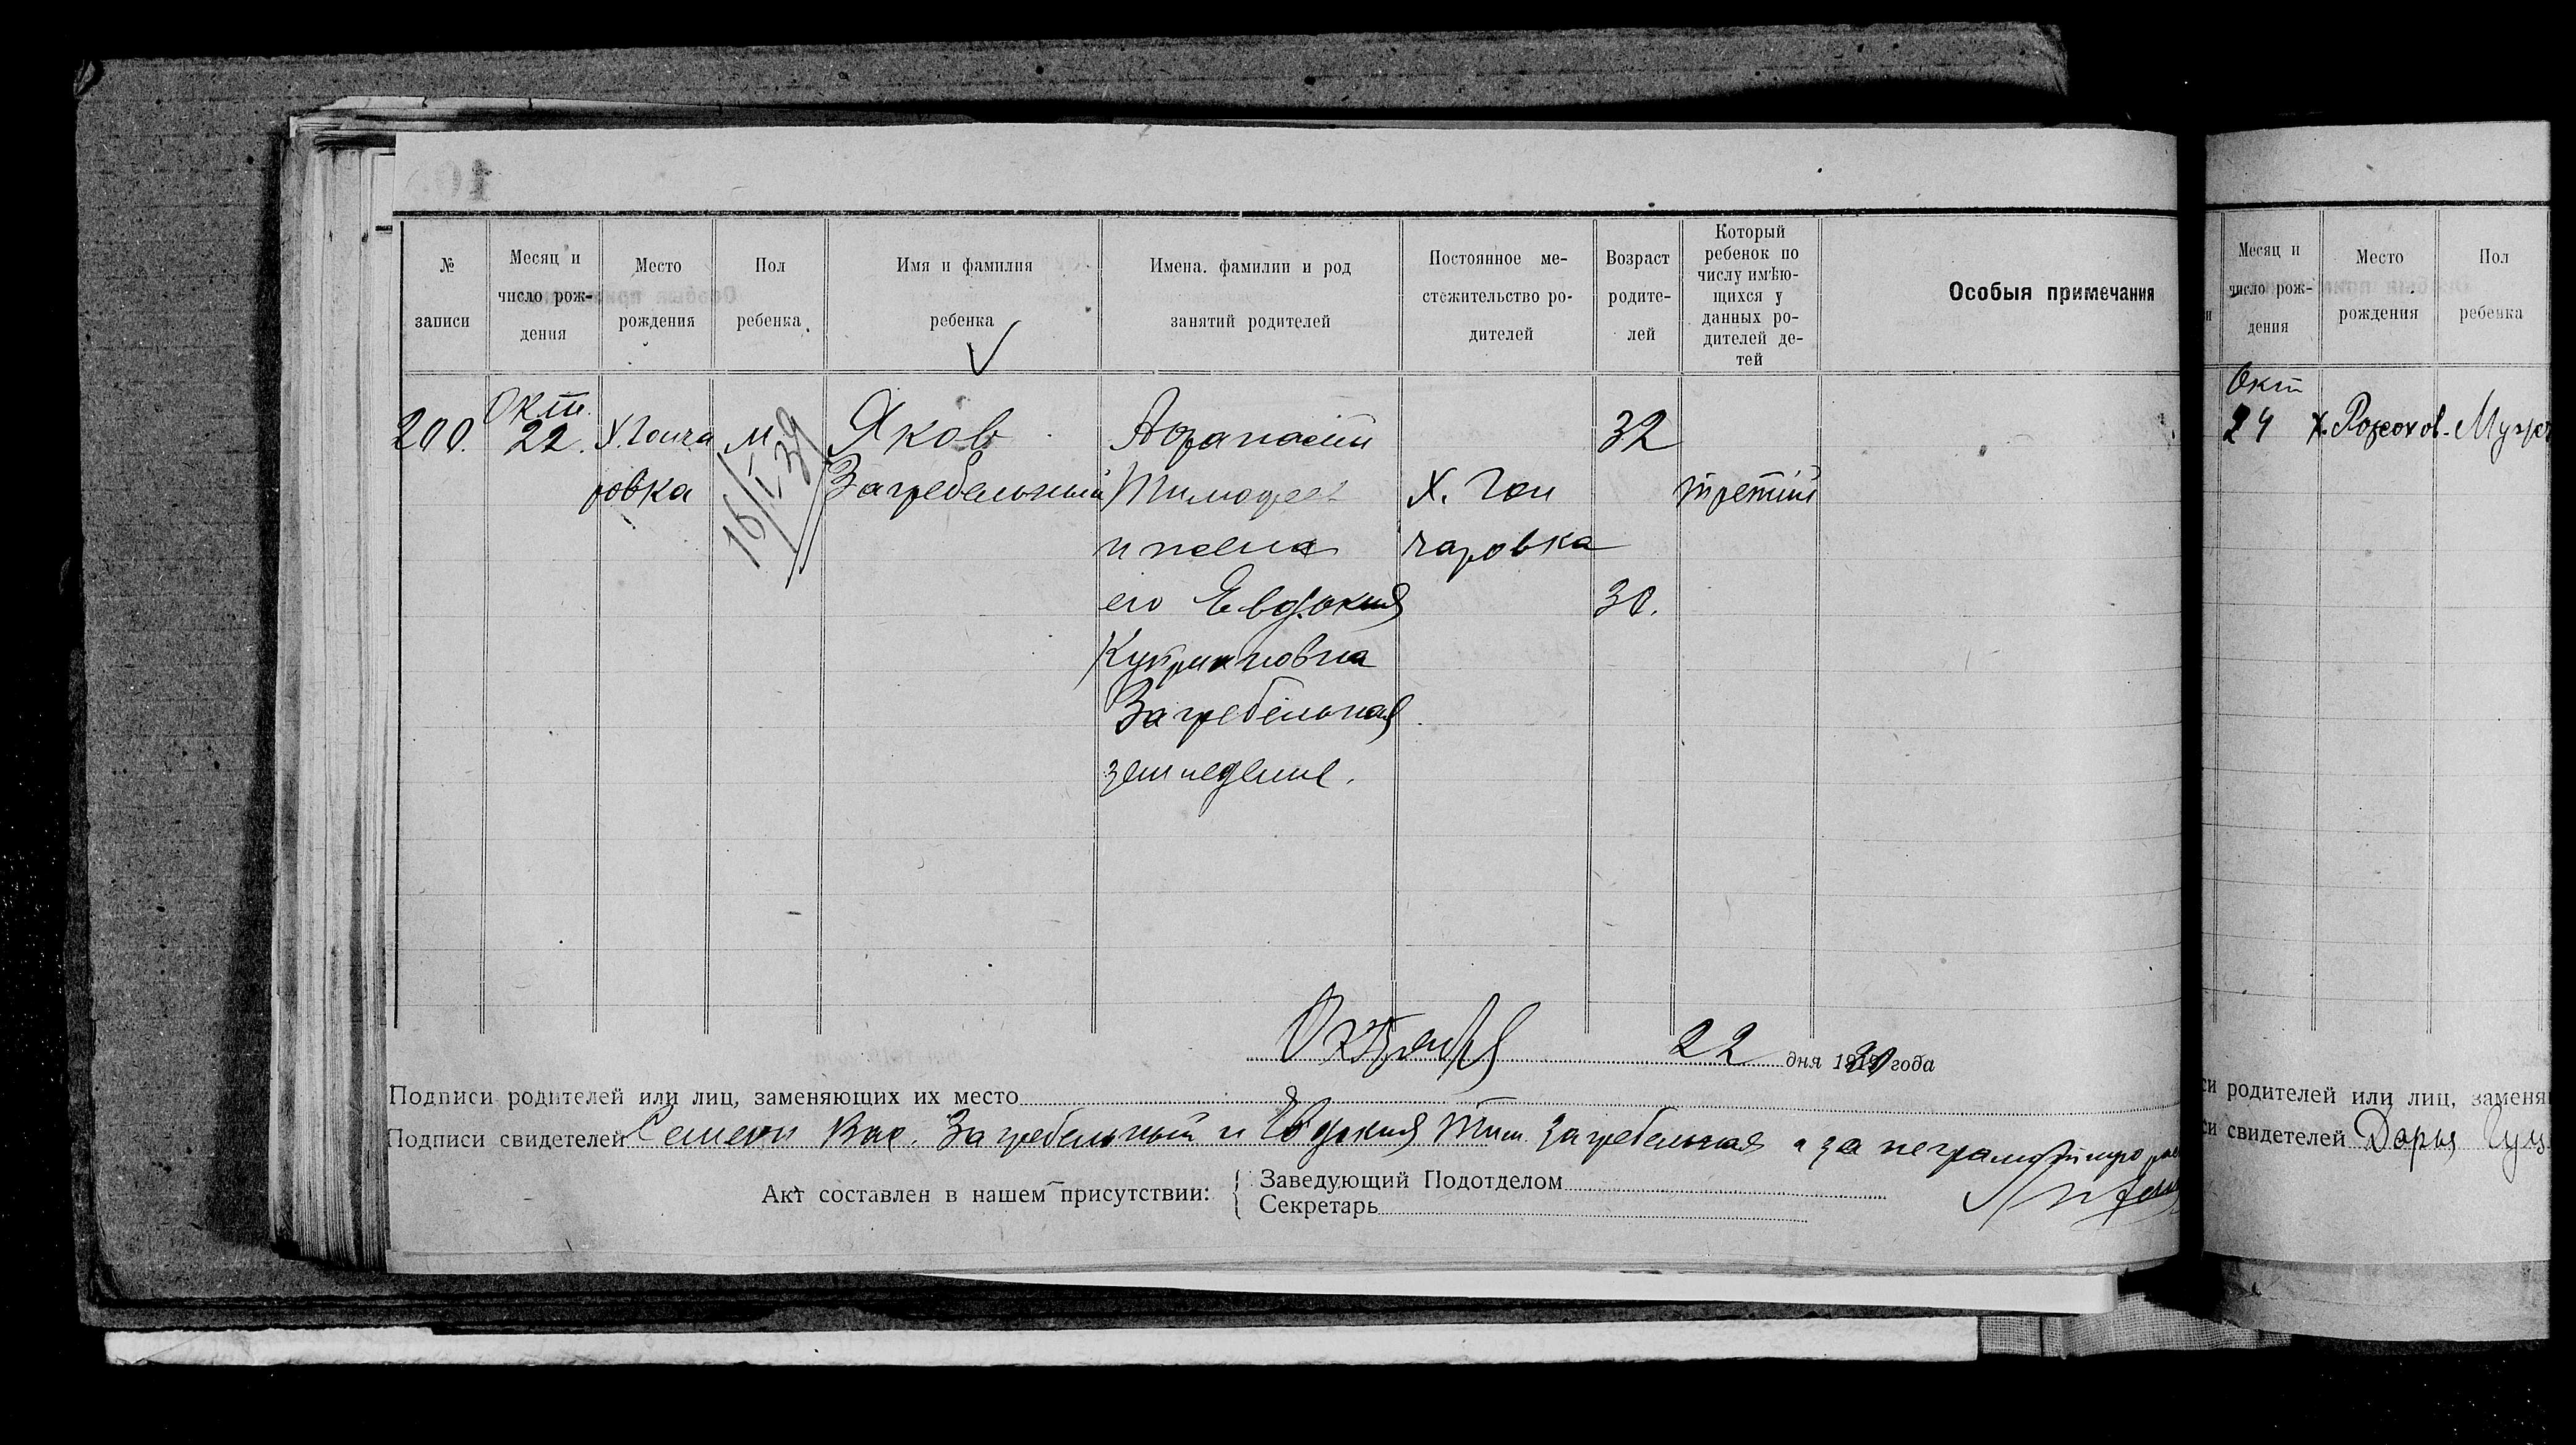 № записи
Месяц и число рож-дения
Место рождения
Пол ребенка
Имя и фамилия ребенка
Имена, фамилии и род занятий родителей
Постоянное ме-стожительство ро-дителей
Возраст родите-лей
Который ребенок по числу имѣю-щихся у данных ро-дителей де-тей
Особыя примечания
200.
Окт. 22.
Х. Гонча
ровка
м
16/I 39
Яков
Загребельный
Афанасий
Тимофеев
и жена
его Евдокия
Куприяновна
Загребельная
земледелие.
Х. Гон
чаровка
32
30.
третий
Октября 22 дня 1920 года
Подписи родителей или лиц, заменяющих их место
Подписи свидетелей Семен Вас. Загребельный и Евдокия Тим. Загребельная а за неграмотн
Акт составлен в нашем присутствии: { Заведующий Подотделом
Секретарь
Месяц и число рож-дения
Место рождения
Пол ребенка
Окт
24
х. Рожков
Муж
си родителей или лиц, заменя
си свидетелей Дарья